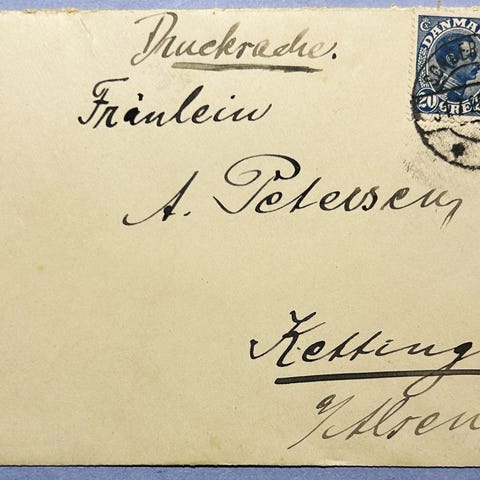 Drucksache.
DANMARK
20 ØRE
Fräulein
A. Petersen,
Ketting
a/Alsen